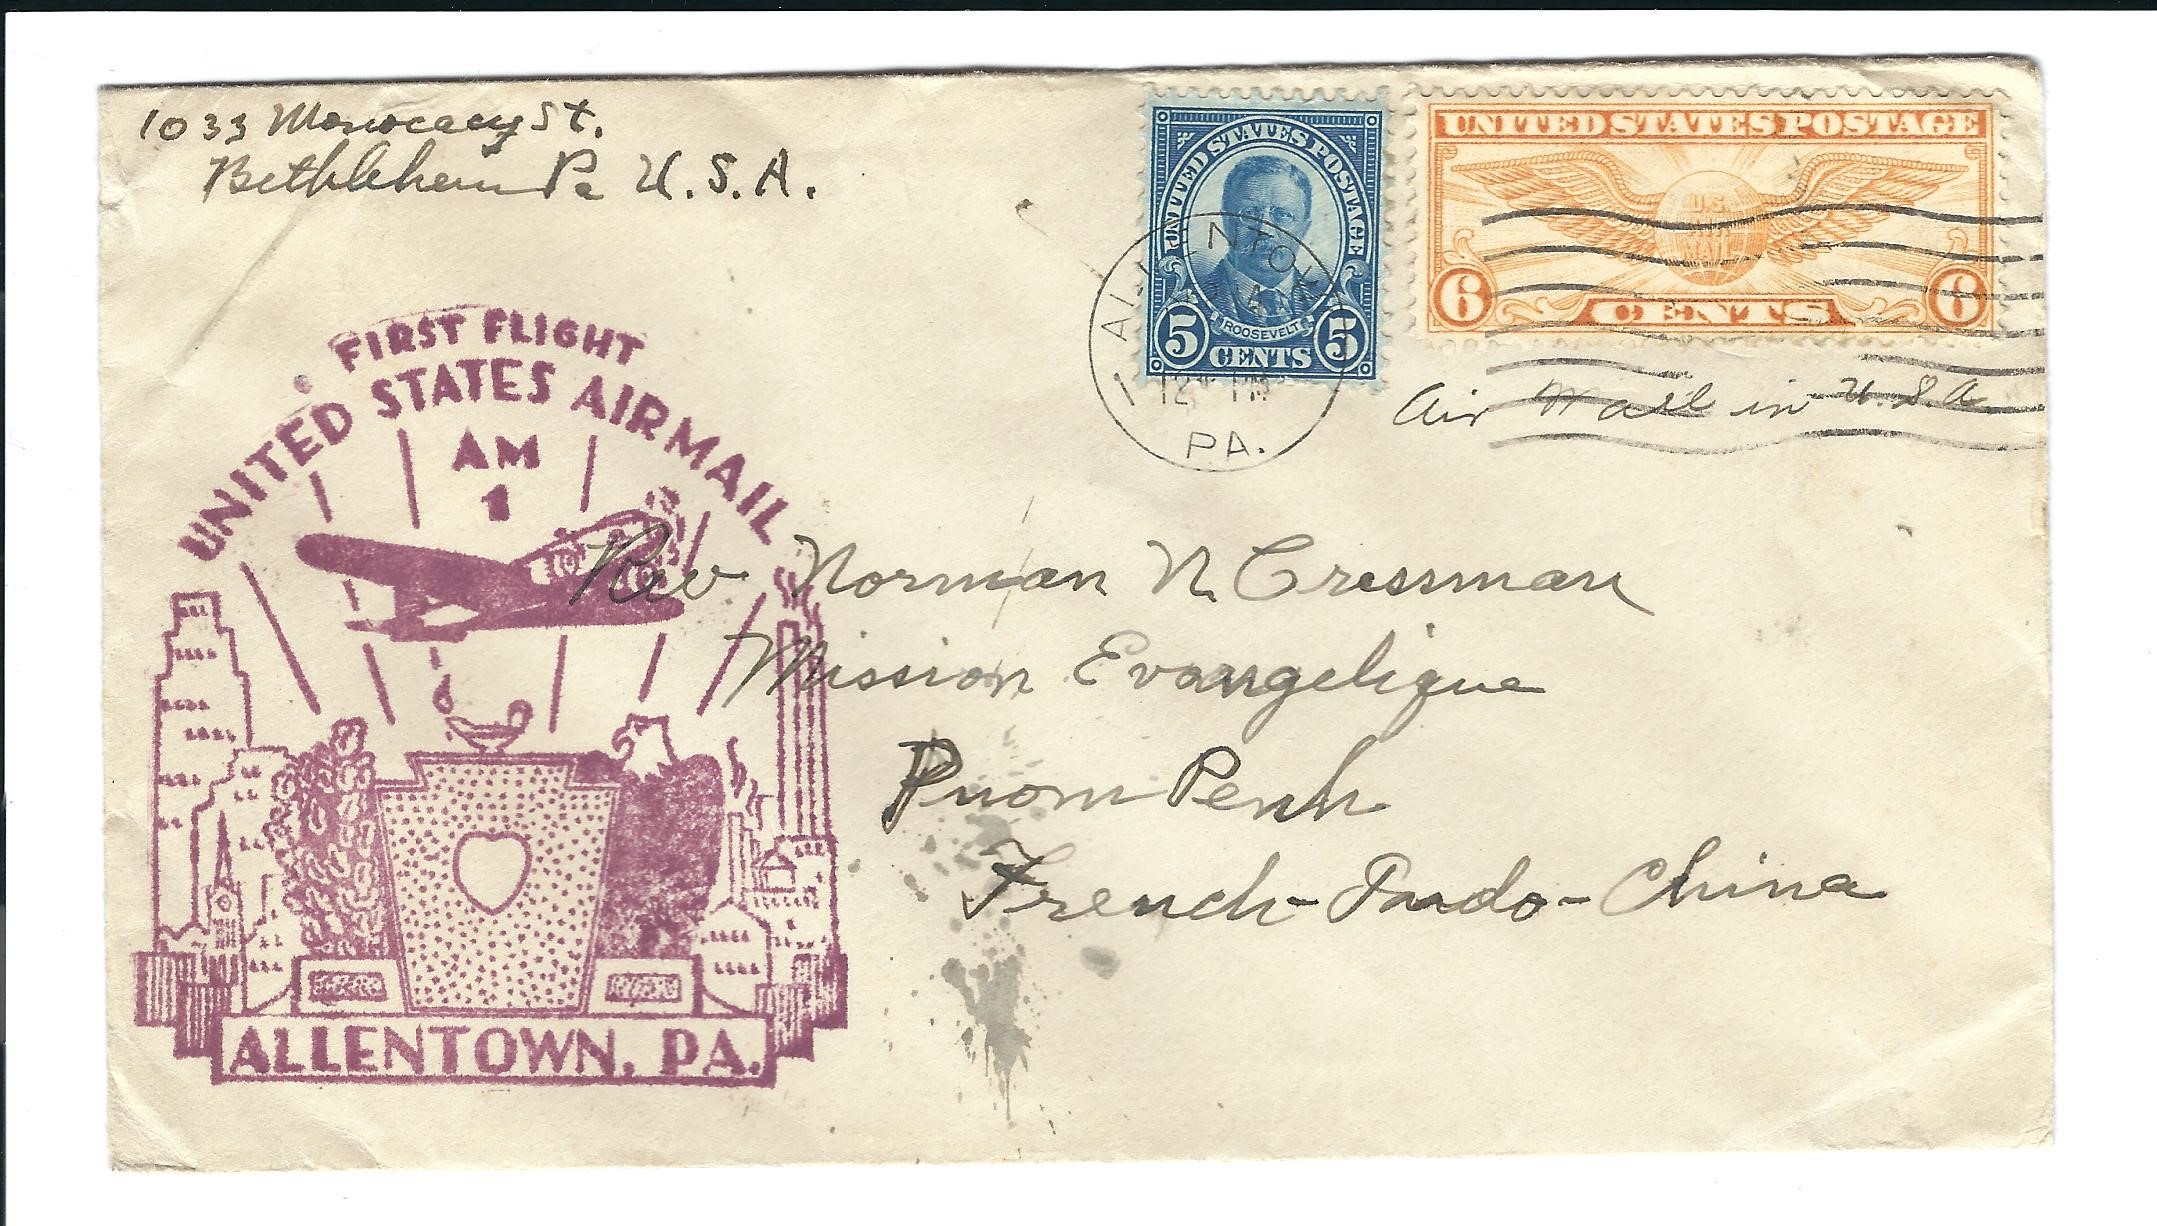 1033 Monocacy St.
Bethlehem Pa U.S.A.
UNITED STATES POSTAGE
ROOSEVELT
5 CENTS 5
UNITED STATES POSTAGE
U.S.
6 CENTS 6
PA.
Air Mail in U.S.A.
FIRST FLIGHT
UNITED STATES AIR MAIL
AM
1
Rev Norman N. Cressman
Mission Evangelique
Pnom Penh
French-Indo-China
ALLENTOWN, PA.